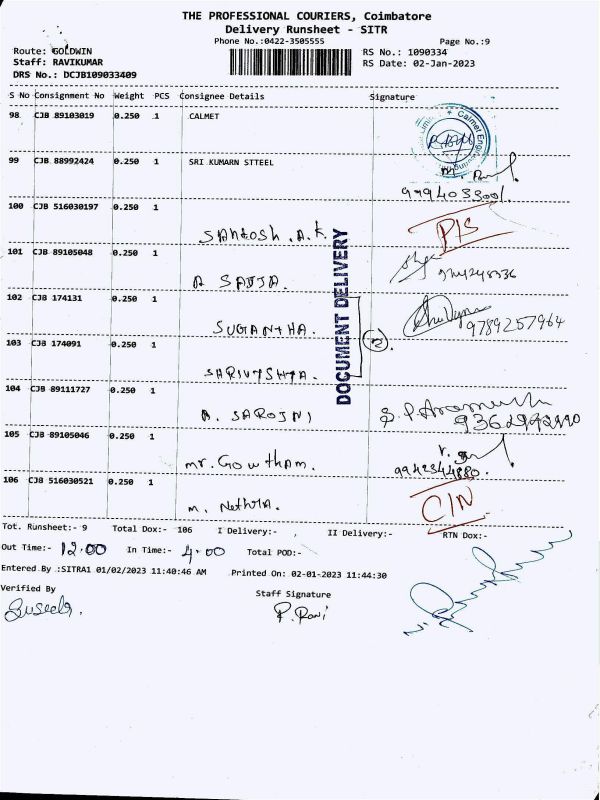 THE PROFESSIONAL COURIERS, Coimbatore
Delivery Runsheet - SITR
Phone No.:0422-3505555
Page No.:9
Route: GOLDWIN
Staff: RAVIKUMAR
DRS No.: DCJB109033409
RS No.: 1090334
RS Date: 02-Jan-2023
S No Consignment No Weight PCS Consignee Details Signature
98 CJB 89103019 0.250 1 CALMET
Calmet Engineering
99 CJB 88992424 0.250 1 SRI KUMARN STTEEL
100 CJB 516030197 0.250 1 Santosh .A.K
101 CJB 89105048 0.250 1
102 CJB 174131 0.250 1 SUGANTHA. 9789257964
DOCUMENT DELIVERY
103 CJB 174091 0.250 1 2.
104 CJB 89111727 0.250 1 SAROJNI
105 CJB 89105046 0.250 1 mr. Gowtham. 9942344880.
106 CJB 516030521 0.250 1 C/N
Tot. Runsheet:- 9 Total Dox:- 106 I Delivery:- II Delivery:- RTN Dox:-
Out Time:- 12.00 In Time:- 4.00 Total POD:-
Entered By :SITRA1 01/02/2023 11:40:46 AM Printed On: 02-01-2023 11:44:30
Verified By
Staff Signature
P. Ravi